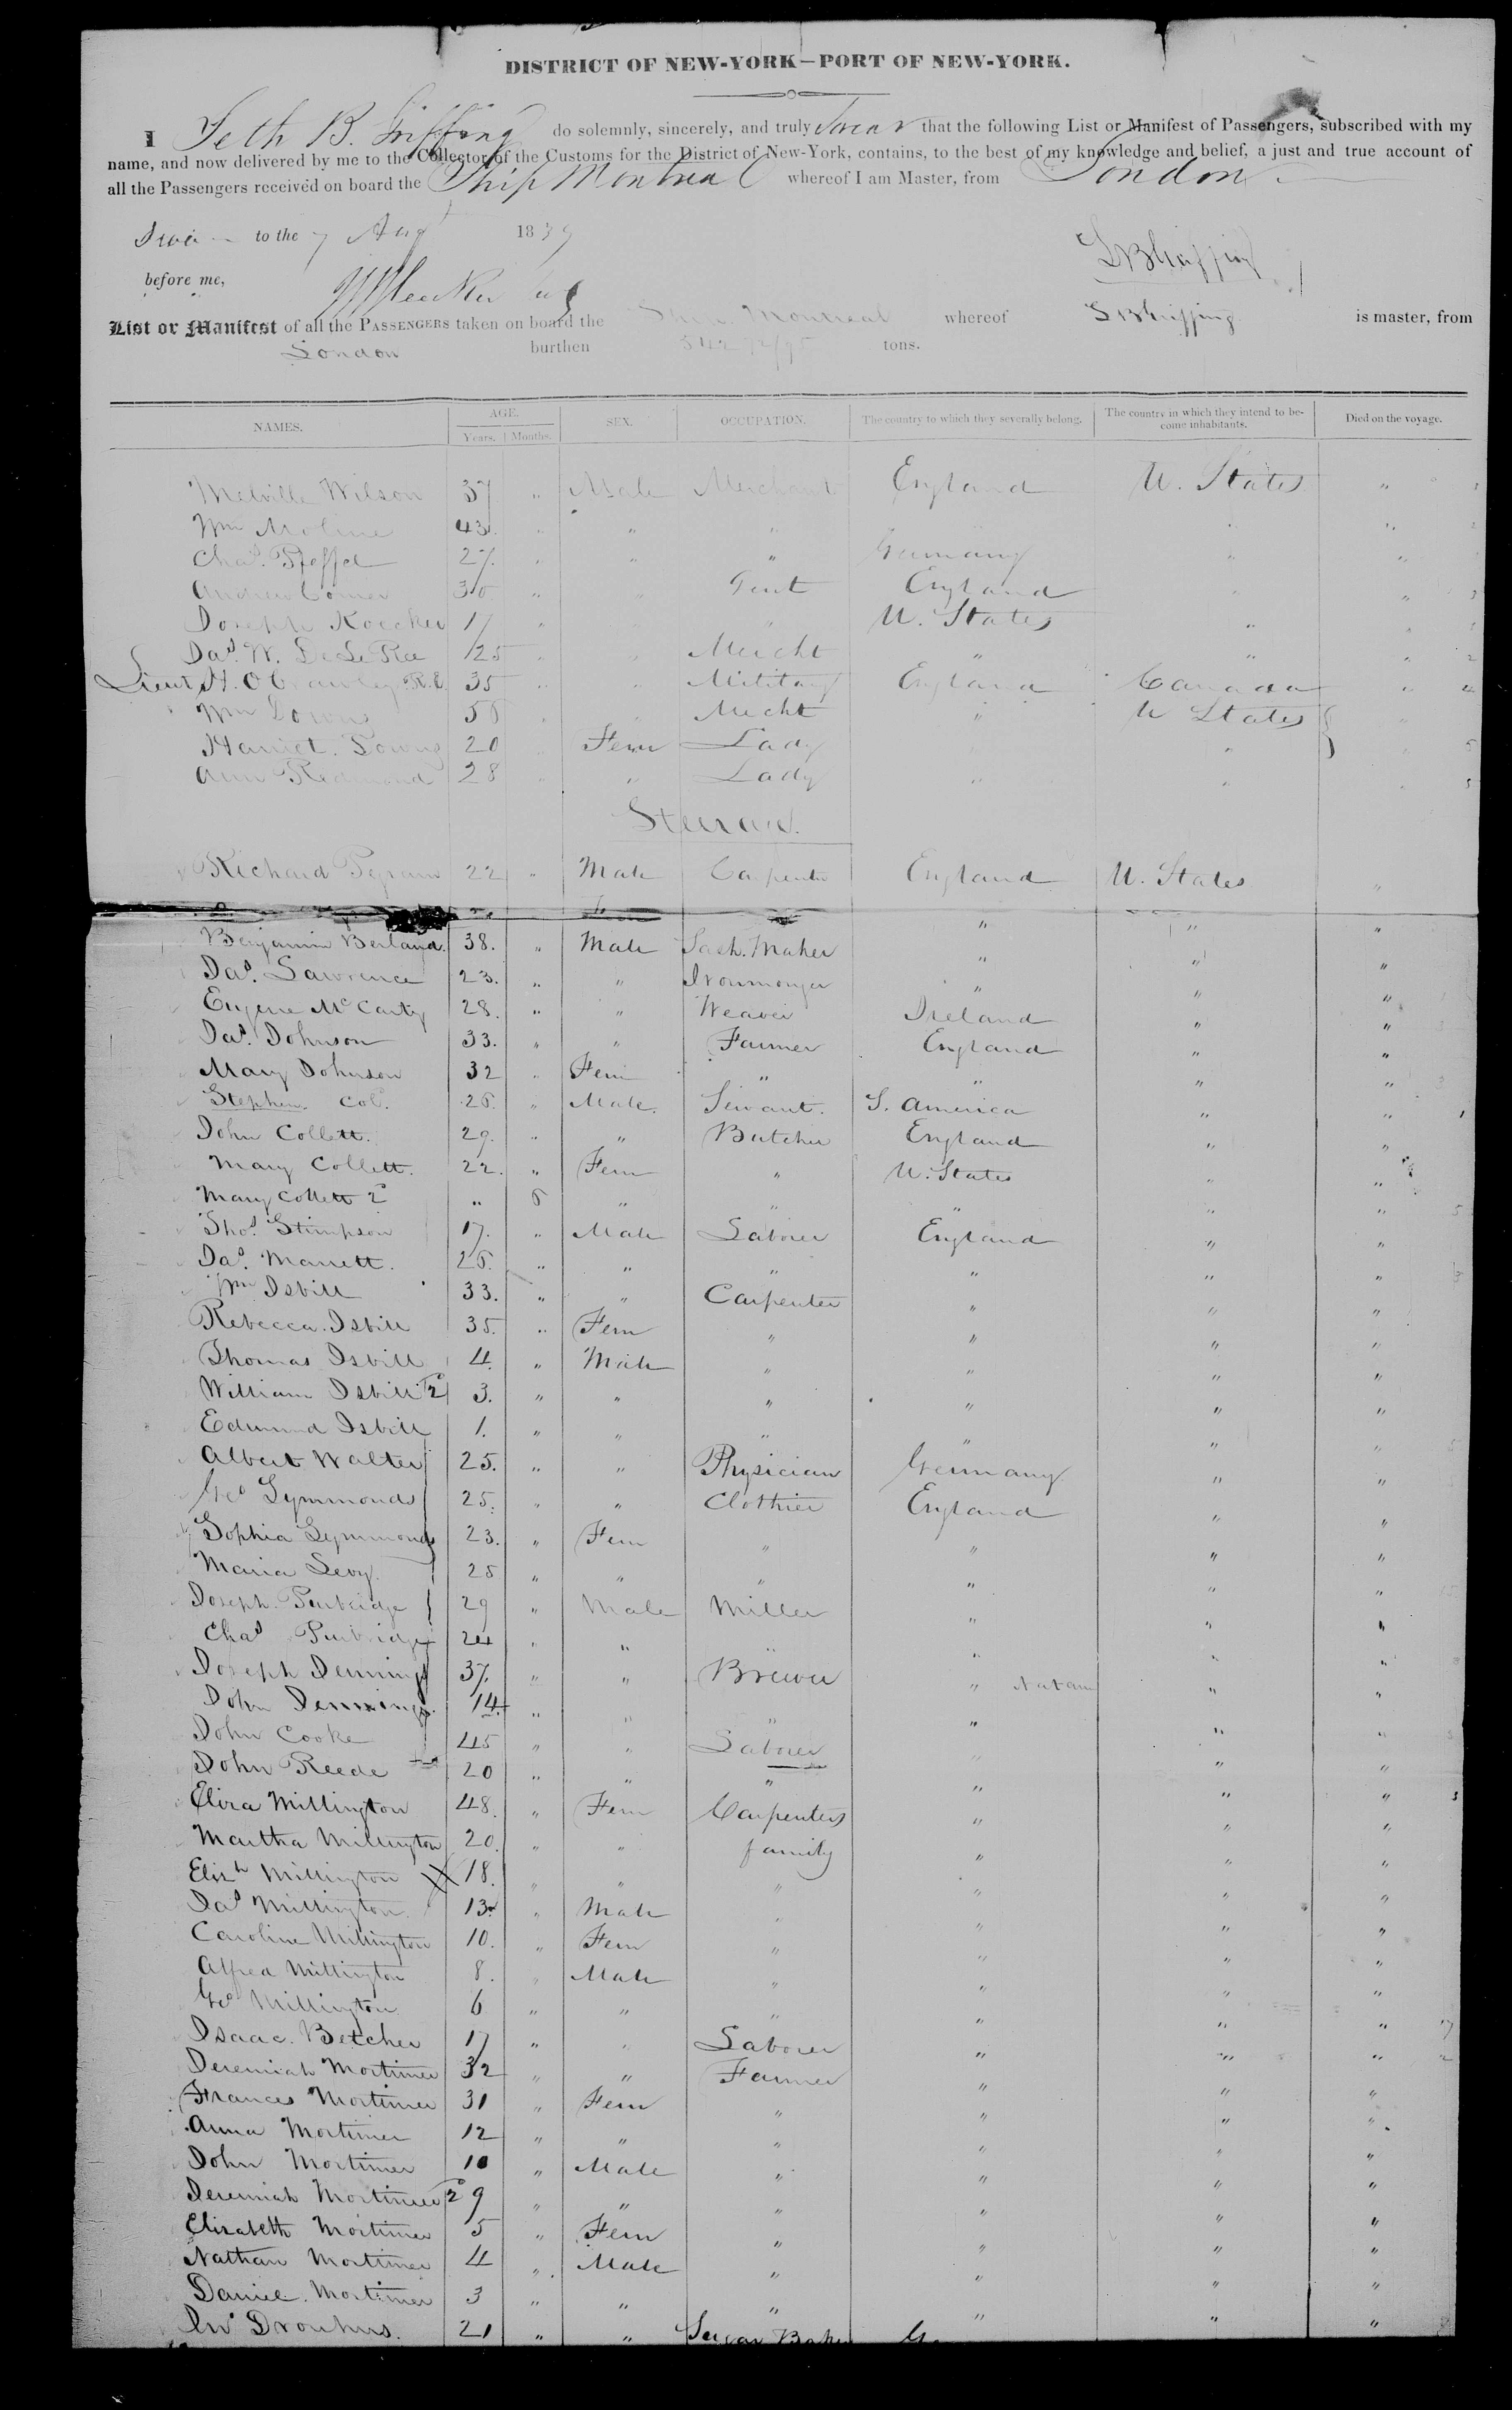 DISTRICT OF NEW-YORK—PORT OF NEW-YORK.
I Seth B. Griffing do solemnly, sincerely, and truly Swear that the following List or Manifest of Passengers, subscribed with my
name, and now delivered by me to the Collector of the Customs for the District of New-York, contains, to the best of my knowledge and belief, a just and true account of
all the Passengers received on board the Ship Montreal whereof I am Master, from London
to the 7 Augt 1839
before me,
List or Manifest of all the PASSENGERS taken on board the Ship Montreal whereof S B Griffing is master, from
London burthen 542 tons.
NAMES. AGE. Years. Months. SEX. OCCUPATION. The country to which they severally belong. The country in which they intend to become inhabitants. Died on the voyage.
Melville Wilson 37 " Male Merchant England U. States "
Wm Moline 43 " " " " " "
Chas. Pfeffel 27 " " " Germany " "
Andrew 30 " " Gent England " "
Joseph Koecker 17 " " " U. States " "
Jas. W. 25 " " Mercht " " "
Lieut H. O Crawley R.E 35 " " Military England Canada "
Wm Downs " " Mercht " U States "
Harriet 20 " Fem Lady " " "
Ann Redmond 28 " " Lady " " "
Steerage.
Richard Pegram 22 " Male Carpenter England U. States "
Benjamin Berland. 38. " Male Sash. Maker " " "
Jas. Lawrence 23. " " Ironmonger " " "
Eugene McCarty 28. " " Weaver Ireland " "
Jas. Johnson 33. " " Farmer England " "
Mary Johnson 32 " Fem " " " "
Stephen Cold. 26. " Male. Servant. S. America " "
John Collett. 29. " " Butcher England " "
Mary Collett. 22. " Fem " U. States " "
Mary Collett 2d " 6 " " " " "
Thos. Stimpson 17. " Male Laborer England " "
Jas. Marrett. 26. " " " " " "
Wm Isbill 33. " " Carpenter " " "
Rebecca Isbill 35. " Fem " " " "
Thomas Isbill 4. " Male " " " "
William Isbill 2d 3. " " " " " "
Edmund Isbill 1. " " " " " "
Albert Walter 25. " " Physician Germany " "
Geo Symmonds 25. " " Clothier England " "
Sophia Symmonds 23. " Fem " " " "
Maria Levy. 25 " " " " " "
Joseph. Purbridge 29 " Male Miller " " "
Chas Purbridge 24 " " " " " "
Joseph Jennings 37. " " Brewer " " "
John Jennings. 14. " " " " " "
John Cooke 45 " " Laborer " " "
John Reede 20 " " " " " "
Eliza Millington 48. " Fem Carpenters " " "
Martha Millington 20. " " family " " "
Elizh Millington 18. " " " " " "
Jas Millington. 13. " Male " " " "
Caroline Millington 10. " Fem " " " "
Alfred Millington 8. " Male " " " "
Geo Millington 6 " " " " " "
Isaac. Betcher 17 " " Laborer " " "
Jeremiah Mortimer 32 " " Farmer " " "
Frances Mortimer 31 " Fem " " " "
Anna Mortimer 12 " " " " " "
John Mortimer 10 " Male " " " "
Jeremiah Mortimer 2d 9 " " " " " "
Elizabeth Mortimer 5 " Fem " " " "
Nathan Mortimer 4 " Male " " " "
Daniel. Mortimer 3 " " " " " "
Jno Droukus. 21 " " Sugar Baker " "